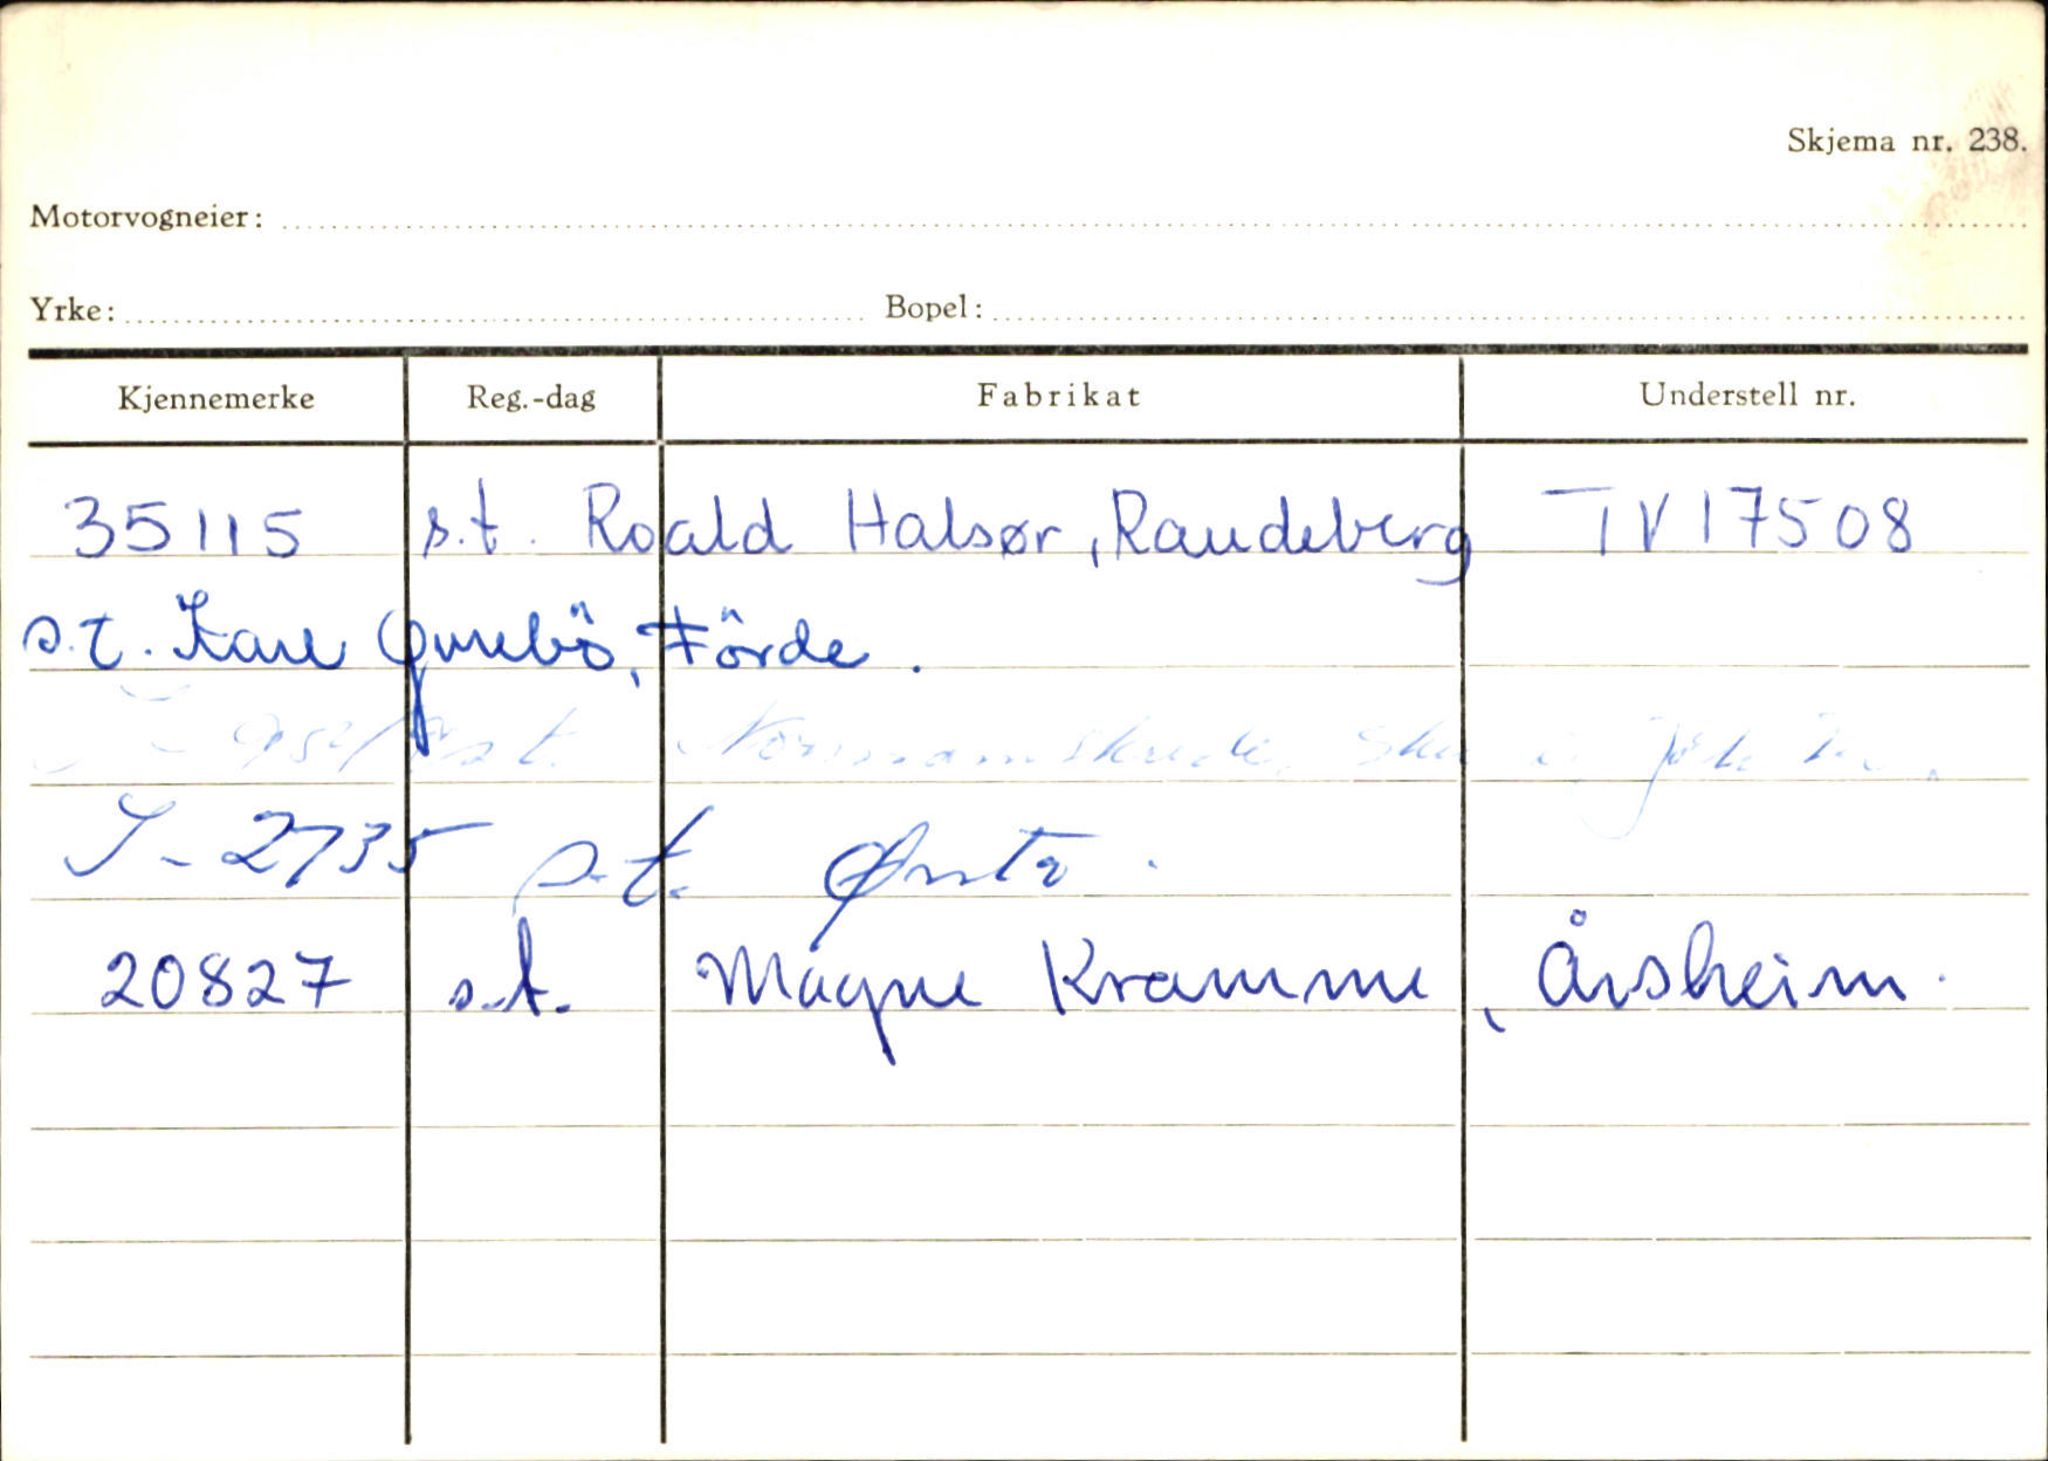 Skjema nr. 238.
Motorvogneier:
Yrke: Bopel:
Kjennemerke Reg.-dag Fabrikat Understell nr.
35115 s.t. Roald Halsør, Raudeberg TV17508
s.t. Kare , Förde.
s.t.
S-2735 s.t. Ørsta.
20827 s.t. Magne Kramme, Årsheim.